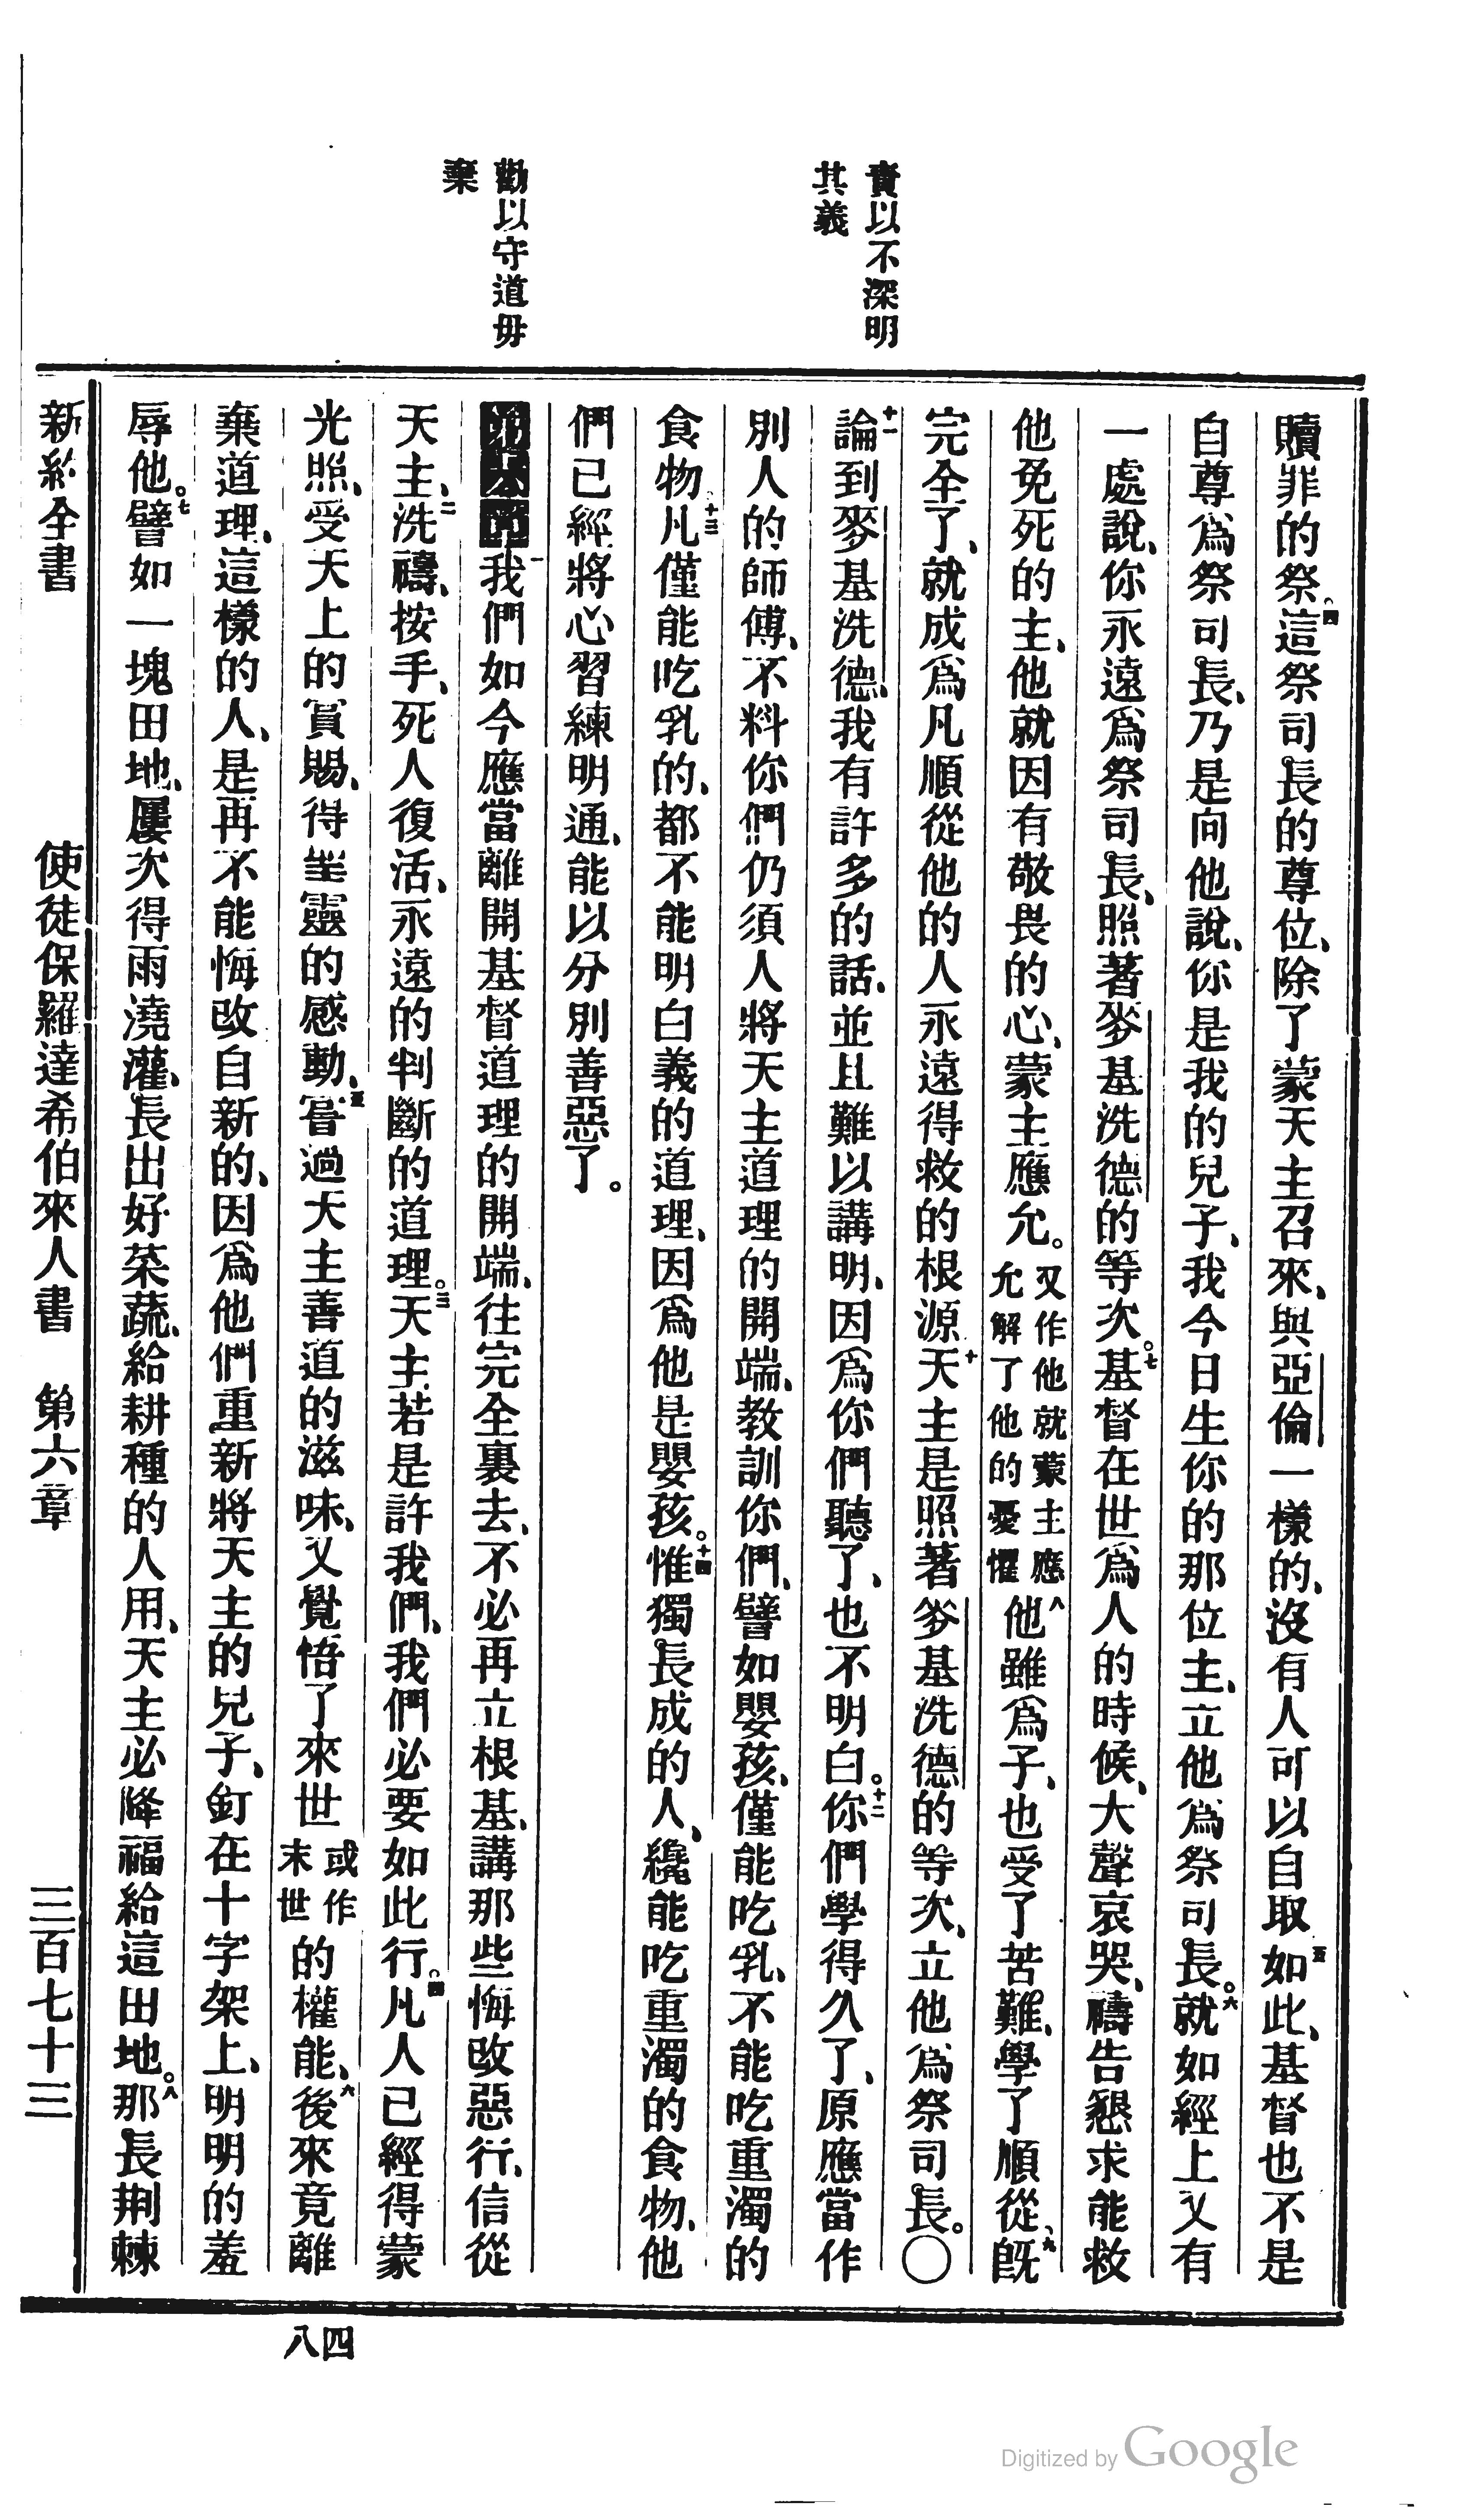 責以不深明
其義
勸以守道毋
棄
贖罪的祭。四這祭司長的尊位、除了蒙天主召來、與亞倫一樣的、沒有人可以自取五如此、基督也不是
自尊爲祭司長、乃是向他說、你是我的兒子、我今日生你的那位主、立他爲祭司長。六就如經上又有
一處說、你永遠爲祭司長、照著麥基洗德的等次。七基督在世爲人的時候、大聲哀哭、禱告懇求能救
他免死的主、他就因有敬畏的心、蒙主應允。又作他就蒙主應允解了他的憂懼八他雖爲子、也受了苦難、學了順從、九旣
完全了、就成爲凡順從他的人永遠得救的根源十天主是照著麥基洗德的等次、立他爲祭司長。〇
十一論到麥基洗德、我有許多的話、並且難以講明、因爲你們聽了、也不明白。十二你們學得久了、原應當作
別人的師傅、不料你們仍須人將天主道理的開端、教訓你們、譬如嬰孩、僅能吃乳、不能吃重濁的
食物。十三凡僅能吃乳的、都不能明白義的道理、因爲他是嬰孩。十四惟獨長成的人、纔能吃重濁的食物、他
們已經將心習練明通、能以分別善惡了。
第六章一我們如今應當離開基督道理的開端、往完全裏去、不必再立根基、講那些悔改惡行、信從
天主、二洗禱、按手、死人復活、永遠的判斷的道理。三天主若是許我們、我們必要如此行。四凡人已經得蒙
光照、受天上的賞賜、得聖靈的感動、五嘗過天主善道的滋味、又覺悟了來世或作末世的權能、六後來竟離
棄道理、這樣的人、是再不能悔改自新的、因爲他們重新將天主的兒子、釘在十字架上、明明的羞
辱他。七譬如一塊田地、屢次得雨澆灌、長出好菜蔬、給耕種的人用、天主必降福給這田地。八那長荆棘
新約全書 使徒保羅達希伯來人書 第六章 三百七十三
四八
Digitized by Google